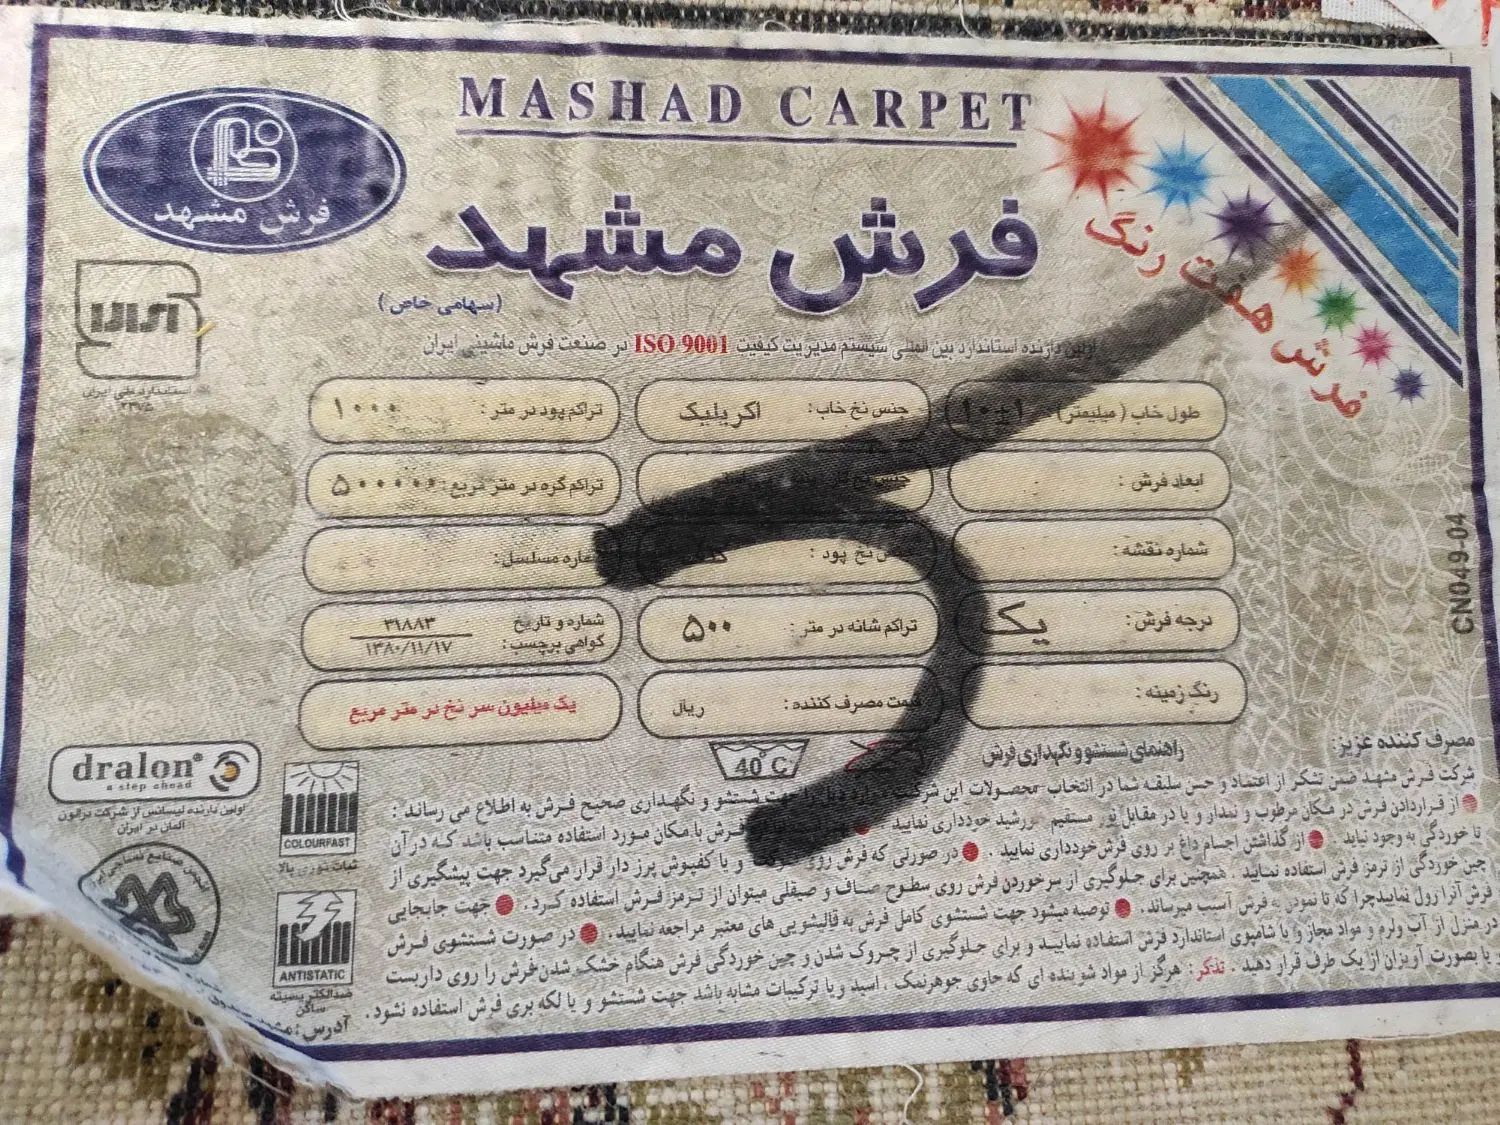 MASHAD CARPET
فرش مشهد
فرش مشهد
(سهامی خاص)
فرش هفت رنگ
اولین دارنده استاندارد بین المللی سیستم مدیریت کیفیت ISO 9001 در صنعت فرش ماشینی ایران
استاندارد ملی ایران
طول خاب (میلیمتر): ۱۰±۱
جنس نخ خاب: اکریلیک
تراکم پود در متر: ۱۰۰۰
ابعاد فرش:
تراکم گره در متر مربع: ۵۰۰۰۰۰
شماره نقشه:
نخ پود:
شماره مسلسل:
درجه فرش: یک
تراکم شانه در متر: ۵۰۰
شماره و تاریخ گواهی برچسب: ۳۱۸۸۳
۱۳۸۰/۱۱/۱۷
رنگ زمینه:
قیمت مصرف کننده: ریال
یک میلیون سر نخ در متر مربع
CN049-04
40 C
راهنمای شستشو و نگهداری فرش
dralon®
a step ahead
اولین دارنده لیسانس از شرکت درالون
آلمان در ایران
COLOURFAST
ثبات نوری بالا
ANTISTATIC
ضد الکتریسیته
ساکن
مصرف کننده عزیز:
شرکت فرش مشهد ضمن تشکر از اعتماد و حسن سلیقه شما در انتخاب محصولات این شرکت شستشو و نگهداری صحیح فرش به اطلاع می رساند:
از قراردادن فرش در مکان مرطوب و نمدار و یا در مقابل نور مستقیم خورشید خودداری نمایید. فرش با مکان مورد استفاده متناسب باشد که در آن
تا خوردگی به وجود نیاید. از گذاشتن اجسام داغ بر روی فرش خودداری نمایید. در صورتی که فرش روی و یا کفپوش پرز دار قرار می‌گیرد جهت پیشگیری از
چین خوردگی از ترمز فرش استفاده نمایید. همچنین برای جلوگیری از سرخوردن فرش روی سطوح صاف و صیقلی میتوان از ترمز فرش استفاده کرد. جهت جابجایی
فرش آنرا رول نمایید چرا که تا نمودن به فرش آسیب میرساند. توصیه میشود جهت شستشوی کامل فرش به قالیشویی های معتبر مراجعه نمایید. در صورت شستشوی فرش
در منزل از آب ولرم و مواد مجاز و یا شامپوی استاندارد فرش استفاده نمایید و برای جلوگیری از چروک شدن و چین خوردگی فرش هنگام خشک شدن فرش را روی داربست
و یا بصورت آویزان از یک طرف قرار دهید. تذکر: هرگز از مواد شوینده ای که حاوی جوهرنمک، اسید و یا ترکیبات مشابه باشد جهت شستشو و یا لکه بری فرش استفاده نشود.
آدرس: مشهد